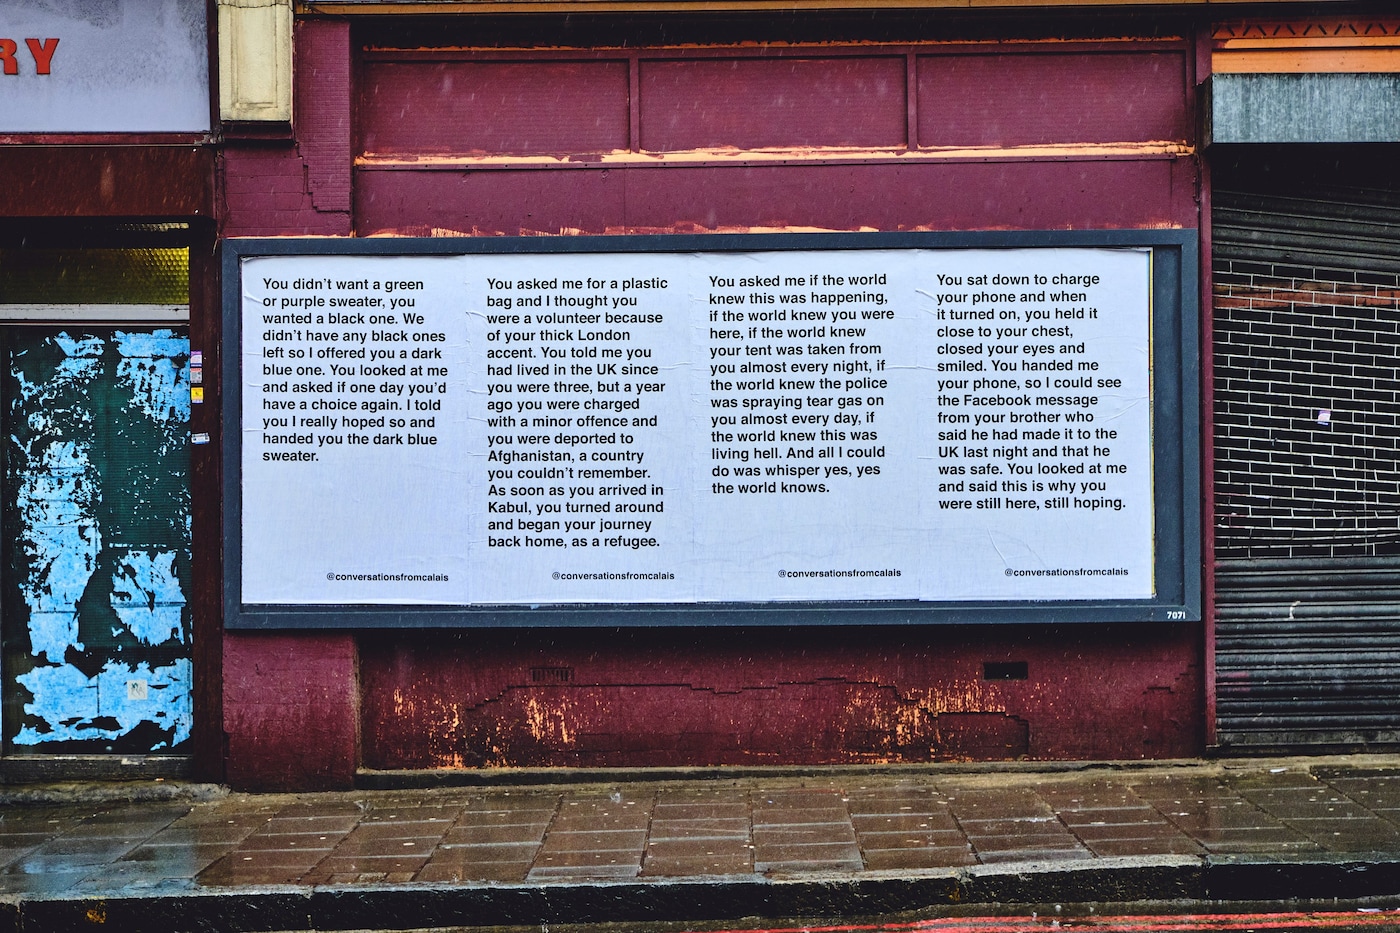 RY
You didn't want a green
or purple sweater, you
wanted a black one. We
didn't have any black ones
left so I offered you a dark
blue one. You looked at me
and asked if one day you'd
have a choice again. I told
you I really hoped so and
handed you the dark blue
sweater.
@conversationsfromcalais
You asked me for a plastic
bag and I thought you
were a volunteer because
of your thick London
accent. You told me you
had lived in the UK since
you were three, but a year
ago you were charged
with a minor offence and
you were deported to
Afghanistan, a country
you couldn't remember.
As soon as you arrived in
Kabul, you turned around
and began your journey
back home, as a refugee.
@conversationsfromcalais
You asked me if the world
knew this was happening,
if the world knew you were
here, if the world knew
your tent was taken from
you almost every night, if
the world knew the police
was spraying tear gas on
you almost every day, if
the world knew this was
living hell. And all I could
do was whisper yes, yes
the world knows.
@conversationsfromcalais
You sat down to charge
your phone and when
it turned on, you held it
close to your chest,
closed your eyes and
smiled. You handed me
your phone, so I could see
the Facebook message
from your brother who
said he had made it to the
UK last night and that he
was safe. You looked at me
and said this is why you
were still here, still hoping.
@conversationsfromcalais
7071